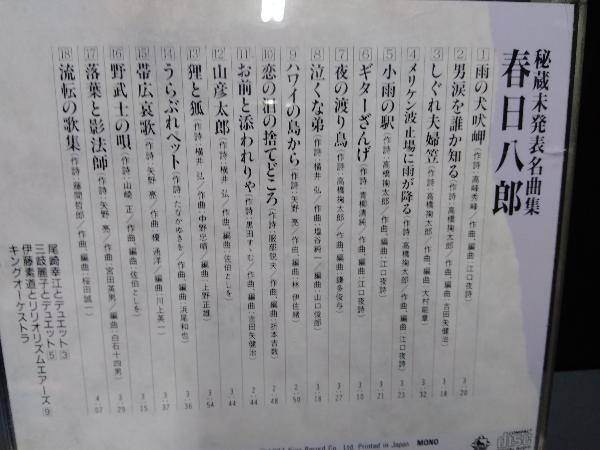 秘蔵未発表名曲集
春日八郎
1 雨の犬吠岬 (作詩・高峰秀峰/作曲、編曲・江口夜詩) 3:20
2 男涙を誰か知る (作詩・高橋掬太郎/作曲、編曲・吉田矢健治) 3:18
3 しぐれ夫婦笠 (作詩・高橋掬太郎/作曲、編曲・大村能章) 3:32
4 メリケン波止場に雨が降る (作詩・高橋掬太郎/作曲、編曲・江口夜詩) 3:23
5 小雨の駅 (作詩・高橋掬太郎/作曲、編曲・江口夜詩) 3:21
6 ギターざんげ (作詩・青柳清純/作曲、編曲・江口夜詩) 3:10
7 夜の渡り鳥 (作詩・高橋掬太郎/作曲、編曲・鎌多俊与) 3:27
8 泣くな弟 (作詩・横井 弘/作曲・塩谷純一/編曲・山口俊郎) 3:18
9 ハワイの島から (作詩・矢野 亮/作曲、編曲・林 伊佐緒) 2:50
10 恋の泪の捨てどころ (作詩・服部鋭夫/作曲、編曲・折本吉数) 2:48
11 お前と添われりゃ (作詩・黒田すゝむ/作曲、編曲・吉田矢健治) 2:44
12 山彦太郎 (作詩・横井 弘/作曲、編曲・佐伯としを) 3:44
13 狸と狐 (作詩・横井 弘/作曲・中野忠晴/編曲・上野正雄) 3:54
14 うらぶれペット (作詩・たなかゆきを/作曲、編曲・浜尾和也) 3:36
15 帯広哀歌 (作詩・矢野 亮/作曲・榎 透洋/編曲・川上英一) 3:37
16 野武士の唄 (作詩・山崎 正/作曲、編曲・佐伯としを) 3:15
17 落葉と影法師 (作詩・矢野 亮/作曲・宮田英男/編曲・白石十四男) 3:29
18 流転の歌集 (作詩・藤間哲郎/作曲、編曲・桜田誠一) 4:07
尾崎幸江とデュエット③
三岐麗子とデュエット⑤
伊藤素道とリリオリズムエアーズ⑨
キングオーケストラ
King Record Co., Ltd. Printed in Japan MONO
COMPACT disc